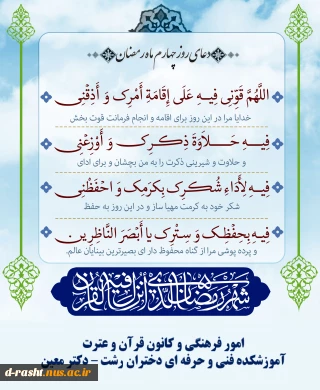 دعای روز چهارم ماه رمضان
اللَّهُمَّ قَوِّنِی فِیهِ عَلَی إِقَامَةِ أَمْرِکَ وَ أَذِقْنِی
خدایا مرا در این روز برای اقامه و انجام فرمانت قوت بخش
فِیهِ حَلاَوَةَ ذِکْرِکَ وَ أَوْزِعْنِی
و حلاوت و شیرینی ذکرت را به من بچشان و برای ادای
فِیهِ لِأَدَاءِ شُکْرِکَ بِکَرَمِکَ وَ احْفَظْنِی
شکر خود به کرمت مهیا ساز و در این روز به حفظ
فِیهِ بِحِفْظِکَ وَ سِتْرِکَ یَا أَبْصَرَ النَّاظِرِینَ
و پرده پوشی مرا از گناه محفوظ دار ای بصیرترین بینایان عالم.
شهر رمضان الذی انزل فیه القرآن
امور فرهنگی و کانون قرآن و عترت
آموزشکده فنی و حرفه ای دختران رشت - دکتر معین
d-rasht.nus.ac.ir